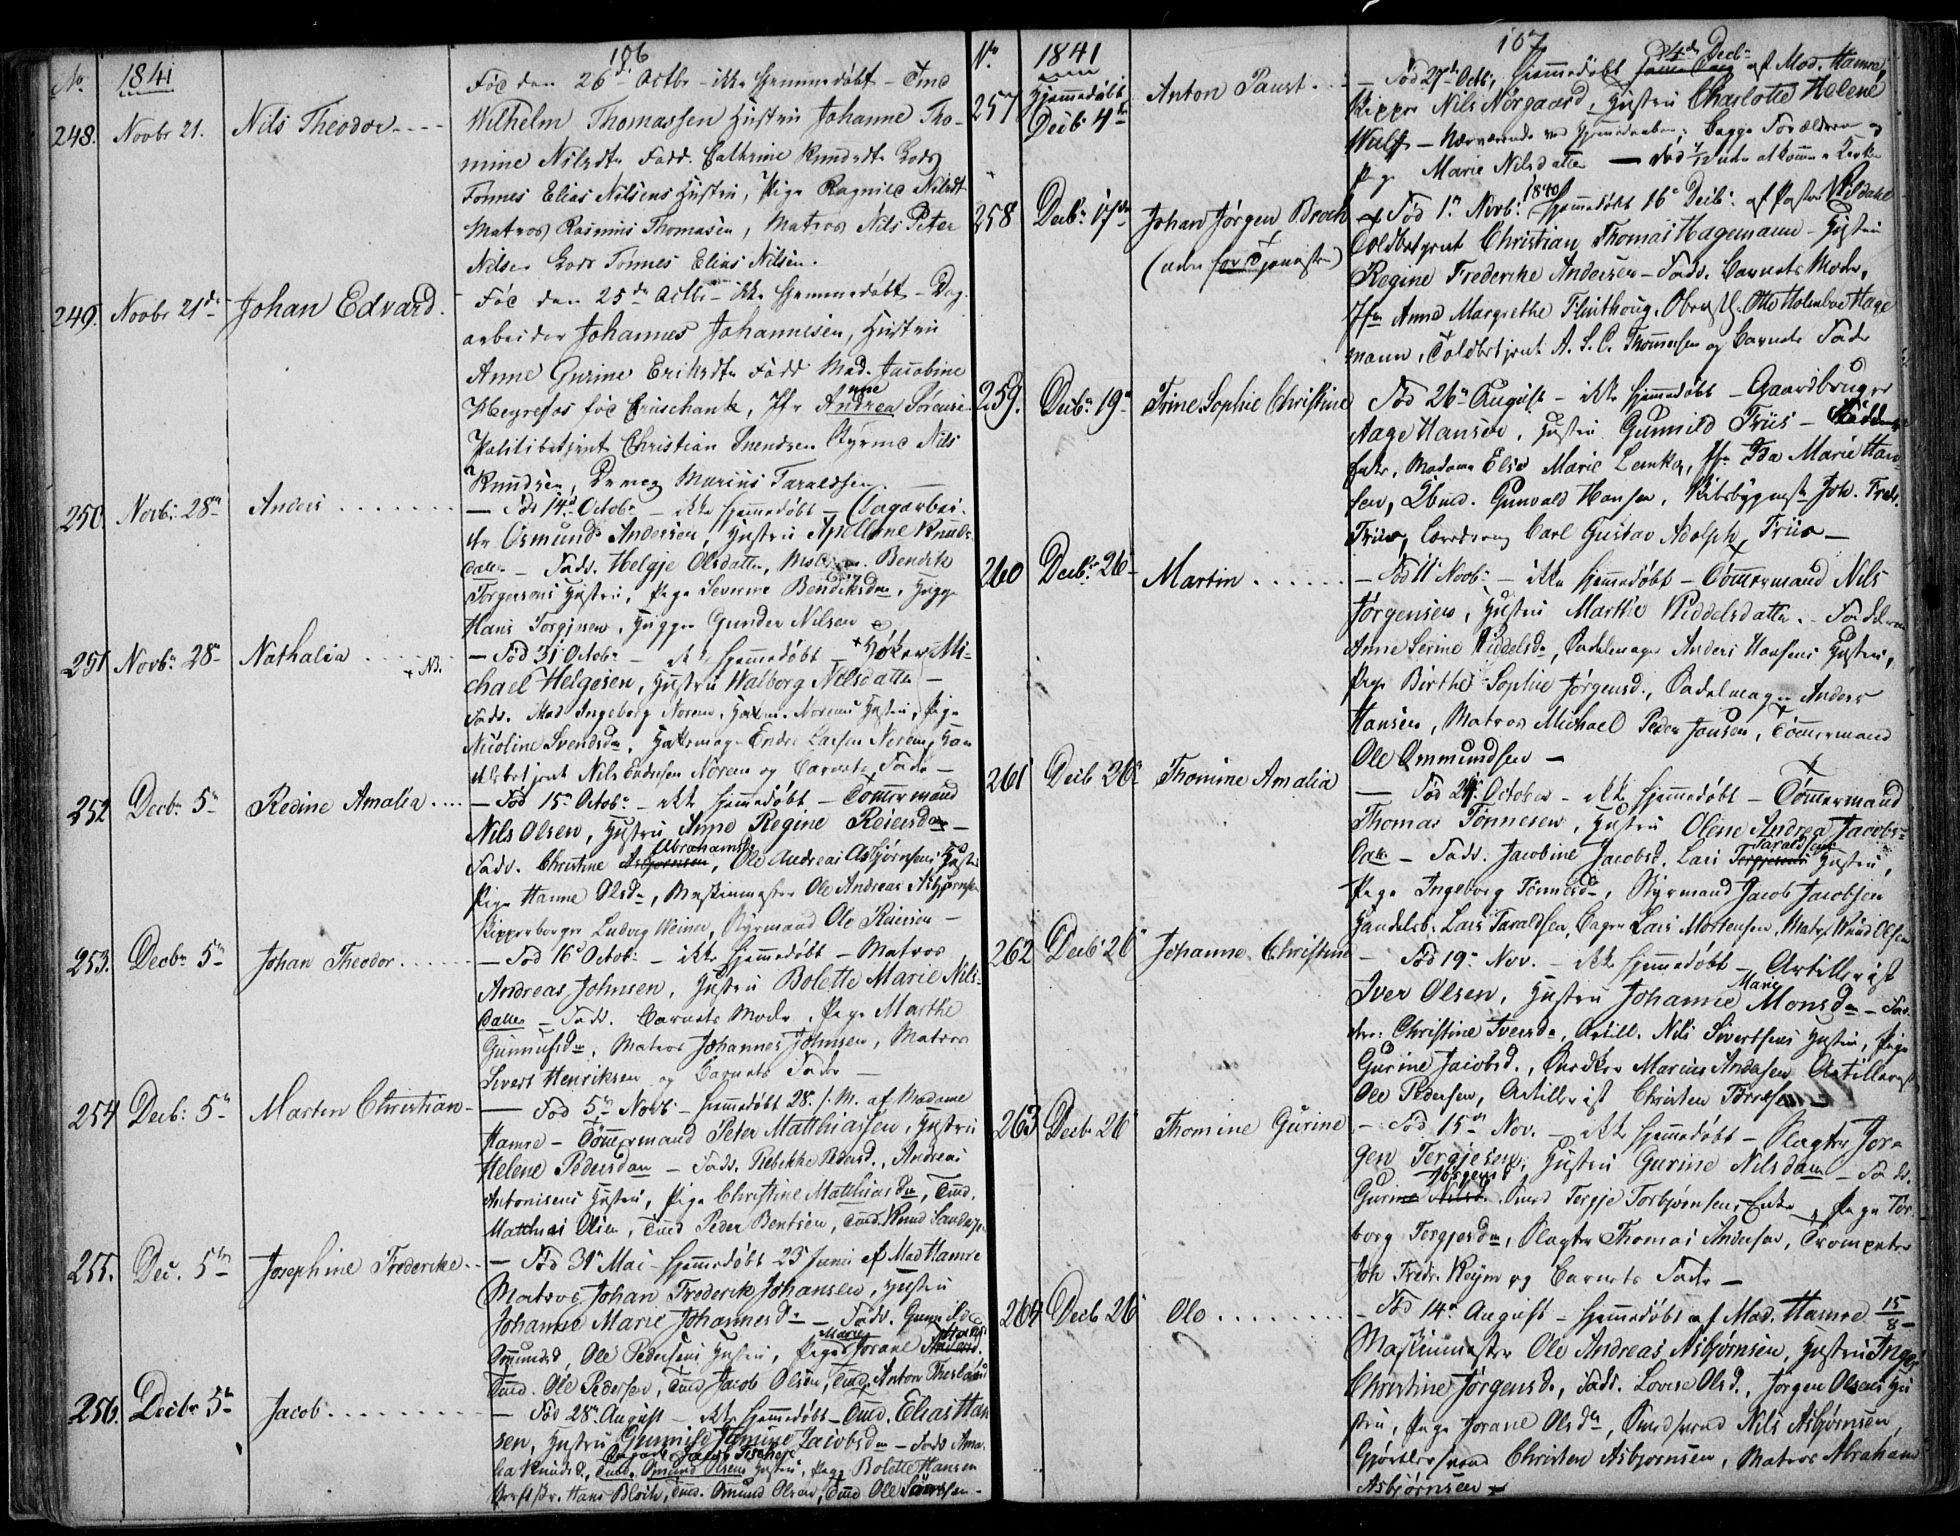 106
No 1841
248. Novbr 21. Nils Theodor
Fød den 26de Octbr – ikke hjemmedøbt – Tmd
Wilhelm Thomassen Hustru Johanne Tho-
mine Nilsdtr Fadd. Cathrine Knudsdtr
Tønnes Elias Nilsens Hustru, Pige Ragnild Nilsdt
Matros Rasmus Thomasen, Matros Nils Peter
Nilsen Tønnes Elias Nilsen.
249. Novbr 21de Johan Edvard.
Fød den 25de Octbr – ikke hjemmedøbt – Dag-
arbeider Johannes Johannesen, Hustru
Anne Gurine Eriksdtr Fadd Mad. Jacobine
fød Cruschank, Jfr Andrea Sørensen
Politibetjent Christian Svendsen Styrmd Nils
Knudsen, Dreng Marius Taraldsen
250. Novbr: 28de Anders
– Fød 14d Octobr – ikke hjemmedøbt – Dagarbei-
der Osmund Andersen, Hustru Apellone Knuds-
datter – Fadd. Helgje Olsdatter, Bendik
Torgersens Hustru, Pige Severine Bendiksdtr, Hugger
Hans Torgjersen, Hugger Gunder Nilsen
251 Novbr: 28de Nathalia + NB.
– Fød 31 Octobr – ikke hjemmedøbt + Høker Mi-
chael Helgesen, Hustru Walborg Nilsdatter –
Fadd. Mad Ingeborg Noren, Hustru, Pige
Nicoline Svendsdtr, Endre Larsen Noren, Han-
delsbetjent Nils Endresen Noren og Barnets Fader –
252 Decbr 5te Redine Amalia
– Fød 15de Octobr – ikke hjemmedøbt – Tømmermand
Nils Olsen, Hustru Anne Regine Reiersdatter –
Abrahamsd
Fadd. Christine Asbjørnsen, Ole Andreas Asbjørnsens Hustru
Pige Hanne Olsdtr, Maskinmester Ole Andreas Asbjørnsen
Skipperborger Ludvig Weiner, Styrmand Ole Reiersen –
253. Decbr 5te Johan Theodor
– Fød 16d Octobr – ikke hjemmedøbt – Matros
Andreas Johnsen, Hustru Bolette Marie Nils-
datter – Fadd. Barnets Moder, Pige Marthe
Gunnufsdtr, Matros Johannes Johnsen, Matros
Sivert Henriksen og Barnets Fader –
254 Decb: 5te Marten Christian
– Fød 5te Novbr – hjemmedøbt 28. s. M. af Madame
Hamre – Tømmermand Peter Matthiassen, Hustru
Helene Pedersdatter – Fadd. Rebekke Pedersd., Andreas
Antonisens Hustru, Pige Christine Matthiasdtr, Tmd.
Matthias Olsen, Tmd Peder Bentsen, Tmd. Knud
255. Dec. 5te Josephine Frederikke
– Fød 31te Mai – hjemmedøbt 23 Juni af Mad Hamre
Matros Johan Frederik Johansen, Hustru
Johanne Marie Johannesdtr – Fadd. Gunnild
Marie
Omundsd, Ole Pedersens Hustru, Pige Jorane
Tmd. Ole Pedersen, Tmd Jacob Olsen, Tmd. Anton
256. Decbr 5te Jacob
– Fød 28de August – ikke hjemmedøbt – Tmd. Elias Han-
sen, Hustru Gunnild Tomine Jacobsdtr – Fadd. Ama-
lia Knudsd., Tmd. Omund Olsens Hustru, Pige Bolette Hansen
Hans Bloch, Tmd. Omund Olsen, Tmd Ole
107
No 1841
257 Hjemmedøbt Decb 4de Anton Faust
4de Decbr
– Fød 27de Octb., hjemmedøbt af Mad. Hamre,
Skipper Nils Nørgaard, Hustru Charlotte Helene
Wulff – Nærværende ved Hjemmedaaben: Begge Forældrene og
Pige Marie Nilsdatter – død uden at komme i Kirken
258 Decbr 17de Johan Jørgen Broch
1840
Fød 1te Novb: hjemmedøbt 16d Decb: af Pastor
Toldbetjent Christian Thomas Hagemann – Hustru
Regine Frederikke Andersen – Fadd. Barnets Moder,
Jfr Anne Margrethe Flinthoug, Otto Holmboe Hage-
mann, Toldbetjent A. S. C. Thomesen og Barnets Fader
259. Decbr 19de Trine Sophie Christine
Fød 26de August – ikke hjemmedøbt – Gaardbruger
Aage Hansen, Hustru Gunnild Friis –
Madame Elise Marie Lemker, Jfr. Ida Marie Han-
sen, Gunvald Hansen, Joh. Fredr.
Friis, Carl Gustav Adolph Friis –
260 Decbr: 26de Martin
– Fød 11te Novbr – ikke hjemmedøbt – Tømmermand Nils
Jørgensen, Hustru Marthe Widdelsdatter. Fadderne
Anne Serine Widdelsdr, Sadelmager Anders Hansens Hustru,
Pige Birthe Sophie Jørgensd., Sadelmager Anders
Hansen, Matros Michael Peder Jansen, Tømmermand
Ole Ommundsen –
261 Decb 26d Thomine Amalia
– Fød 24de October – ikke hjemmedøbt – Tømmermand
Thomas Tønnesen, Hustru Olene Andrea Jacobs-
Taraldsens
datter – Fadd. Jacobine Jacobsd. Lars Torgjersens Hustru,
Pige Ingeborg Tønnesdtr, Styrmand Jacob Jacobsen
Handelsb. Lars Taraldsen, Bager Lars Mortensen, Matr. Knud Olsen
262 Decb 26d Johanne Christine
– Fød 19de Nov. – ikke hjemmedøbt – Artillerist
Marie
Iver Olsen, Hustru Johanne Monsdr – Fad-
dere: Christine Iversdr, Artill. Nils Sivertsens Hustru, Pige
Gurine Jacobsd., Snedker Marius Andersen, Artillerist
Ole Pedersen, Artillerist Christen Torresen
263 Decbr 26d Thomine Gurine
– Fød 15de Nov. – ikke hjemmedøbt – Slagter Jør-
gen Torgjesen, Hustru Gurine Nilsdatter – Fadd.
Jørgensd
Gurine Nilsd. Smed Torgje Torbjørnsens Enke, Pige Tor-
borg Torgjersdtr, Slagter Thomas Andersen, Trompeter
Joh Fredr. Reym og Barnets Fader –
264 Decb 26d Ole
– Fød 14de August – hjemmedøbt af Mad. Hamre 15/8 –
Maskinmester Ole Andreas Asbjørnsen, Hustru Inger
Christine Jørgensd., Fadd. Lovise Olsd., Jørgen Olsens Hu-
stru, Pige Jorane Olsdtr, Smedsvend Nils Asbjørnsen
Gjørtlersvend Christen Asbjørnsen, Matros Abraham
Asbjørnsen